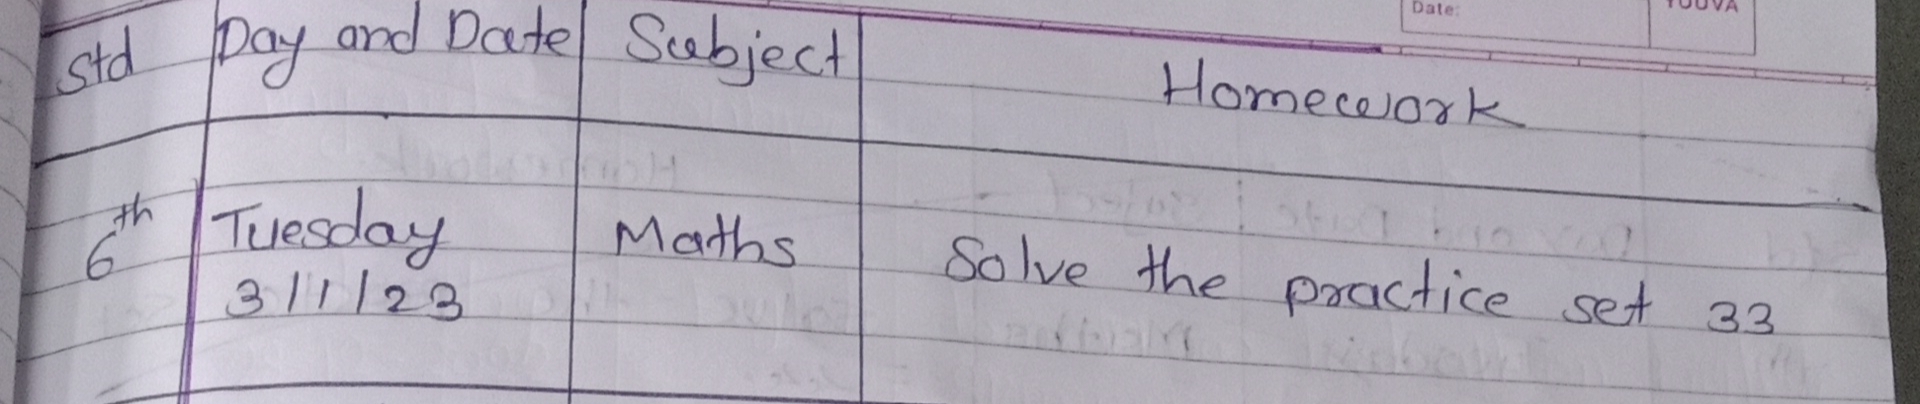 Date:
YOUVA
Std Day and Date Subject Homework
6th Tuesday Maths Solve the practice set 33
3/1/23